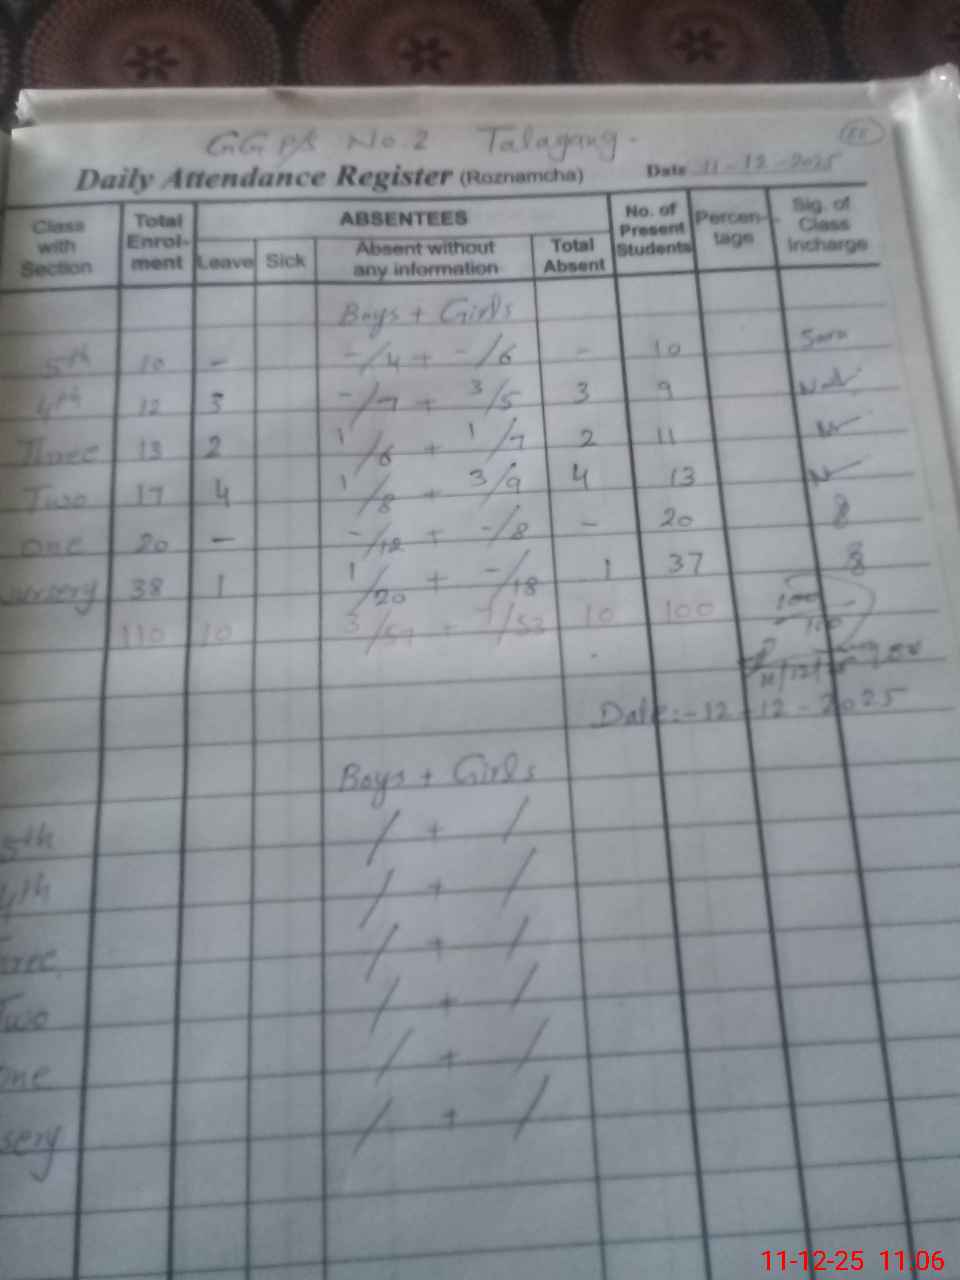 GGP/S No.2 Talagang.
Daily Attendance Register (Roznamcha) Date 11-12-2025
Class with Section
Total Enrol-ment
ABSENTEES
Leave Sick Absent without any information Total Absent
No. of Present Students
Percen-tage
Sig. of Class Incharge
Boys + Girls
5th 10 - -/4 + -/6 - 10 Sara
4th 12 3 -/7 + 3/5 3 9
Three 13 2 1/6 + 1/7 2 11
Two 17 4 1/8 + 3/9 4 13
One 20 - -/12 + -/8 - 20
Nursery 38 1 1/20 + -/18 1 37
110 10 3/57 + 7/53 10 100
100
110
11/12/25
Date:-12-12-2025
Boys + Girls
5th / + /
4th / + /
Three / + /
Two / + /
One / + /
sery / + /
11-12-25 11.06